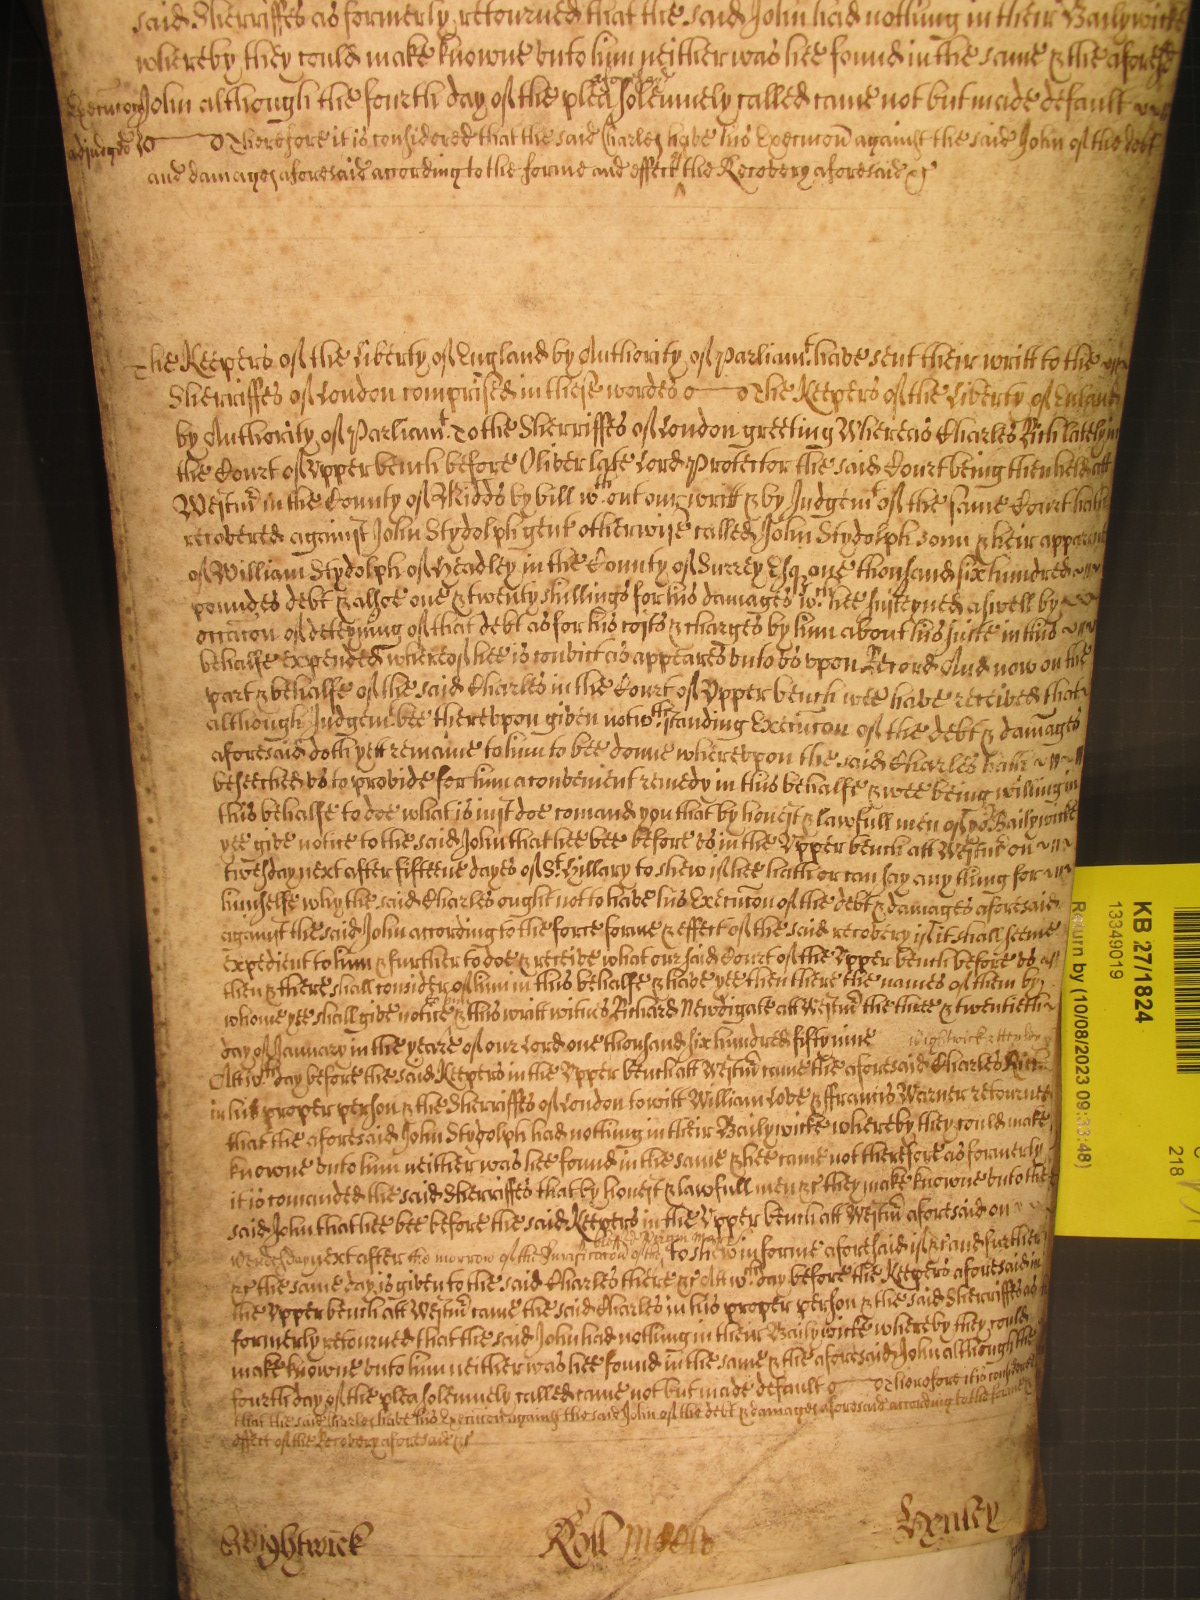 said Sherriffes as formerly retourned that the said John had nothing in their Bailywicke
whereby they could make knowne unto him neither was hee found in the same & the aforesd
aforesaid
Execucon John although the fourth day of the plea solemnely called came not but made default
adjudged Therefore it is considered that the said Charles have his Execucon against the said John of the debt
and damages aforesaid according to the forme and effect the Recovery aforesaid &c
The Keepers of the Liberty of England by Authority of Parliamt. have sent their writt to the
Sherriffes of London comprised in these wordes The Keepers of the Liberty of England
by Authority of Parliamt. To the Sherriffes of London greeting Whereas Charles Rich lately in
the Court of Upper bench before Oliver late Lord Protector the said Court being then held att
Westmr in the County of Midds by bill wthout our writt & by Judgemt of the same Court hath
recovered against John Stydolph gent otherwise called John Stydolph sonn & heir apparant
of William Stydolph of Headley in the County of Surrey Esqr one thousand six hundred
poundes debt & alsoe one & twenty shillings for his damages wch hee susteyned aswell by
occacon of deteyning of that debt as for his costs & charges by him about his suite in this
behalfe expended whereof hee is convict as appeares unto us upon Record And now on the
part & behalfe of the said Charles in the Court of Upper bench wee have received that
although Judgemt bee thereupon given notwthstanding Execucon of the debt & damages
aforesaid doth yett remaine to him to bee donne whereupon the said Charles hath
beseeched us to provide for him a convenient remedy in this behalfe & wee being willing in
this behalfe to doe what is just doe comand you that by honest & lawfull men of yor Bailywicke
yee give notice to the said John that hee bee before us in the Upper bench att Westmr on
twesday next after fifteene dayes of St. Hillary to shew if hee hath or can say any thing for
himselfe why the said Charles ought not to have his Execucon of the debt & damages aforesaid
against the said John according to the force forme & effect of the said recovery if it shall seeme
expedient to him & further to doe & receive what our said Court of the Upper bench before us
then & there shall consider of him in this behalfe & have yee then there the names of them by
whome yee shall give notice to him & this writt witnes Richard Newdigate att Westmr the three & twentieth
day of January in the yeare of our Lord one thousand six hundred fifty nine Wightwick & Henley
Att wch day before the said Keepers in the Upper bench att Westmr came the aforesaid Charles Rich
in his proper person & the Sherriffes of London to witt William Love & Ffrancis Warner retourned
that the aforesaid John Stydolph had nothing in their Bailywicke whereby they could make
knowne unto him neither was hee found in the same & hee came not therefore as formerly
it is comanded the said Sherriffes that by honest & lawfull men &c they make knowne unto the
said John that hee bee before the said Keepers in the Upper bench att Westmr aforesaid on
blessed Virgin Mary
Wednesday next after the morrow of the Purificacon of the to shew in forme aforesaid if &c and further
&c the same day is given to the said Charles there &c Att wch day before the Keepers aforesaid in
the Upper bench att Westmr came the said Charles in his proper person & the said Sherriffes as
formerly retourned that the said John had nothing in their Bailywicke whereby they could
make knowne unto him neither was hee found in the same & the aforesaid John although the
fourth day of the plea solemnely called came not but made default Therefore it is considered
that the said Charles have his Execucon against the said John of the debt & damages aforesaid according to the forme &
effect of the Recovery aforesaid &c
Wightwick Roll Henley
KB 27/1824
13349019
Return by (10/08/2023 09:33:48)
218